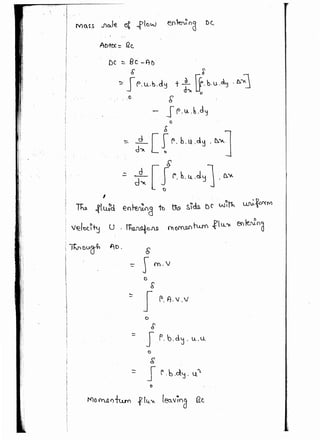 mass rate of flow entering DC
ADtec = BC
DC = BC - AD
= ∫₀^δ ρ.u.b.dy + d/dx [∫₀^δ ρ.b.u.dy . Δx]
- ∫₀^δ ρ.u.b.dy
= d/dx [∫₀^δ ρ.b.u.dy . Δx]
= d/dx [∫₀^δ ρ.b.u.dy] . Δx
The fluid entering to the side DC with uniform
velocity U . Therefore momentum flux entering
Through AD.
= ∫₀^δ m.v
= ∫₀^δ ρ.A.v.v
= ∫₀^δ ρ.b.dy.u.u
= ∫₀^δ ρ.b.dy.u²
Momentum flux leaving BC